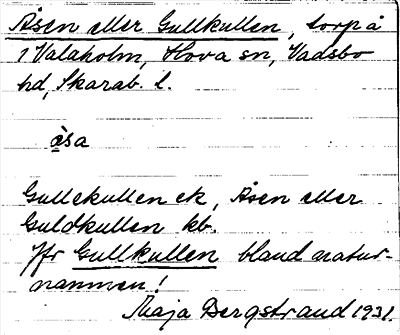 Åsen eller Gullkullen, torp å
1 Valaholm, Hova sn, Vadsbo
hd, Skarab. l.
å̀sa
Gullekullen ek, Åsen eller
Guldkullen kb.
Jfr Gullkullen bland natur-
namnen!
Maja Bergstrand 1931.